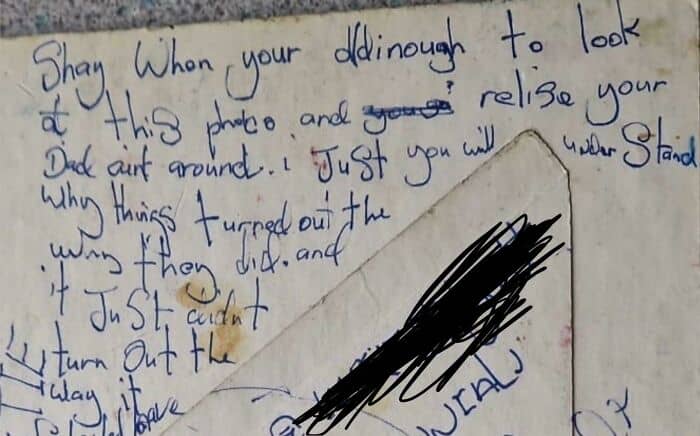 Shay When your oldinough to look
at this photo and relise your
Dad ain't around. i Just you will under Stand
Why things turned out the
way they did. and
it Just
turn Out the
Way it
have